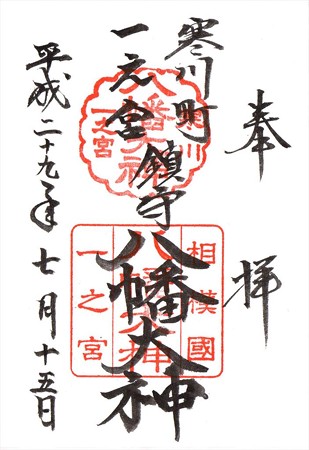 奉拝
寒川町
一之宮
鎮守八幡大神
平成二十九年七月十五日
寒川
八幡大神
一之宮
相模國
八幡大神
一之宮